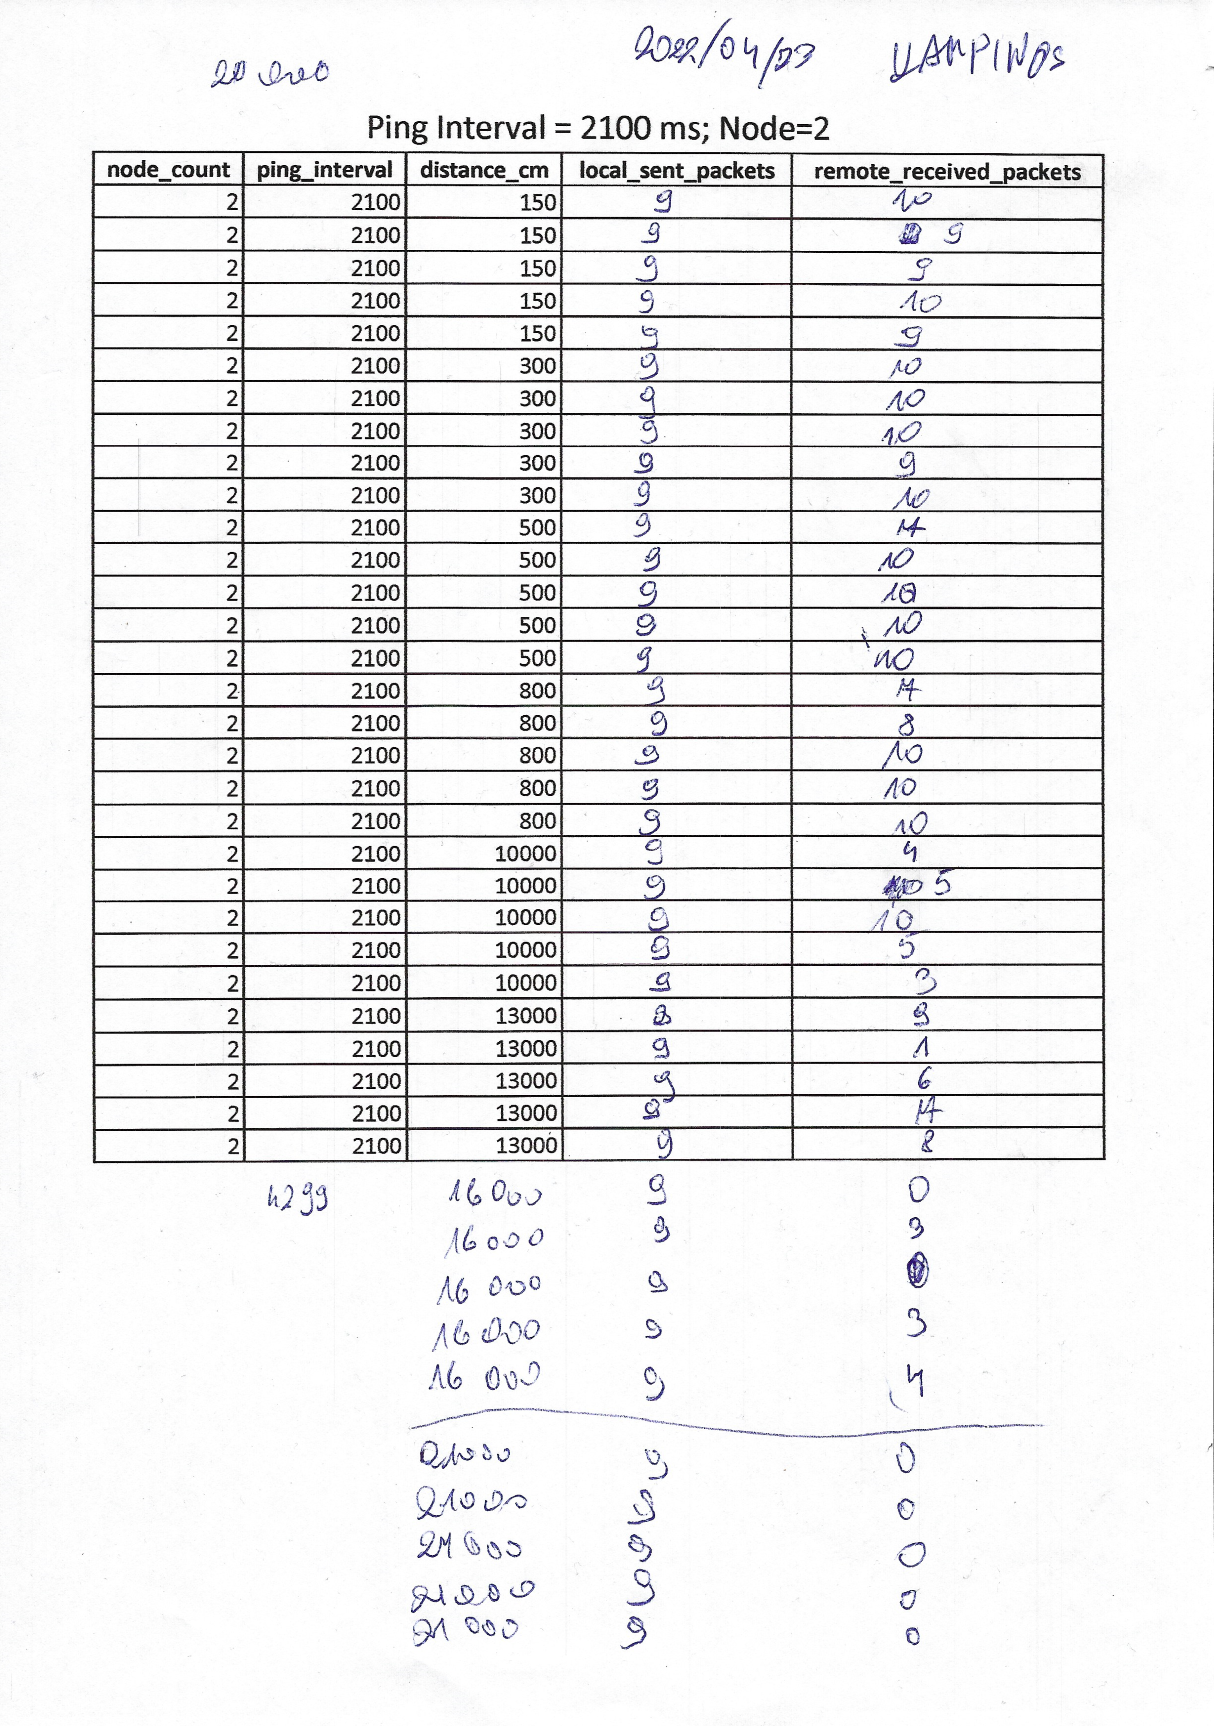 20 000 2022/04/23 KAMPINOS
Ping Interval = 2100 ms; Node=2
node_count ping_interval distance_cm local_sent_packets remote_received_packets
2 2100 150 9 10
2 2100 150 9 9
2 2100 150 9 9
2 2100 150 9 10
2 2100 150 9 9
2 2100 300 9 10
2 2100 300 9 10
2 2100 300 9 10
2 2100 300 9 9
2 2100 300 9 10
2 2100 500 9 7
2 2100 500 9 10
2 2100 500 9 10
2 2100 500 9 10
2 2100 500 9 10
2 2100 800 9 7
2 2100 800 9 8
2 2100 800 9 10
2 2100 800 9 10
2 2100 800 9 10
2 2100 10000 9 4
2 2100 10000 9 5
2 2100 10000 9 10
2 2100 10000 9 5
2 2100 10000 9 3
2 2100 13000 9
2 2100 13000 9 1
2 2100 13000 9 6
2 2100 13000 9 7
2 2100 13000 9 8
4299 16000 9 0
16000 9 3
16 000 9
16 000 9 3
16 000 9 4
21000 9 0
21000 9 0
21 000 9 0
21000 9 0
21 000 9 0